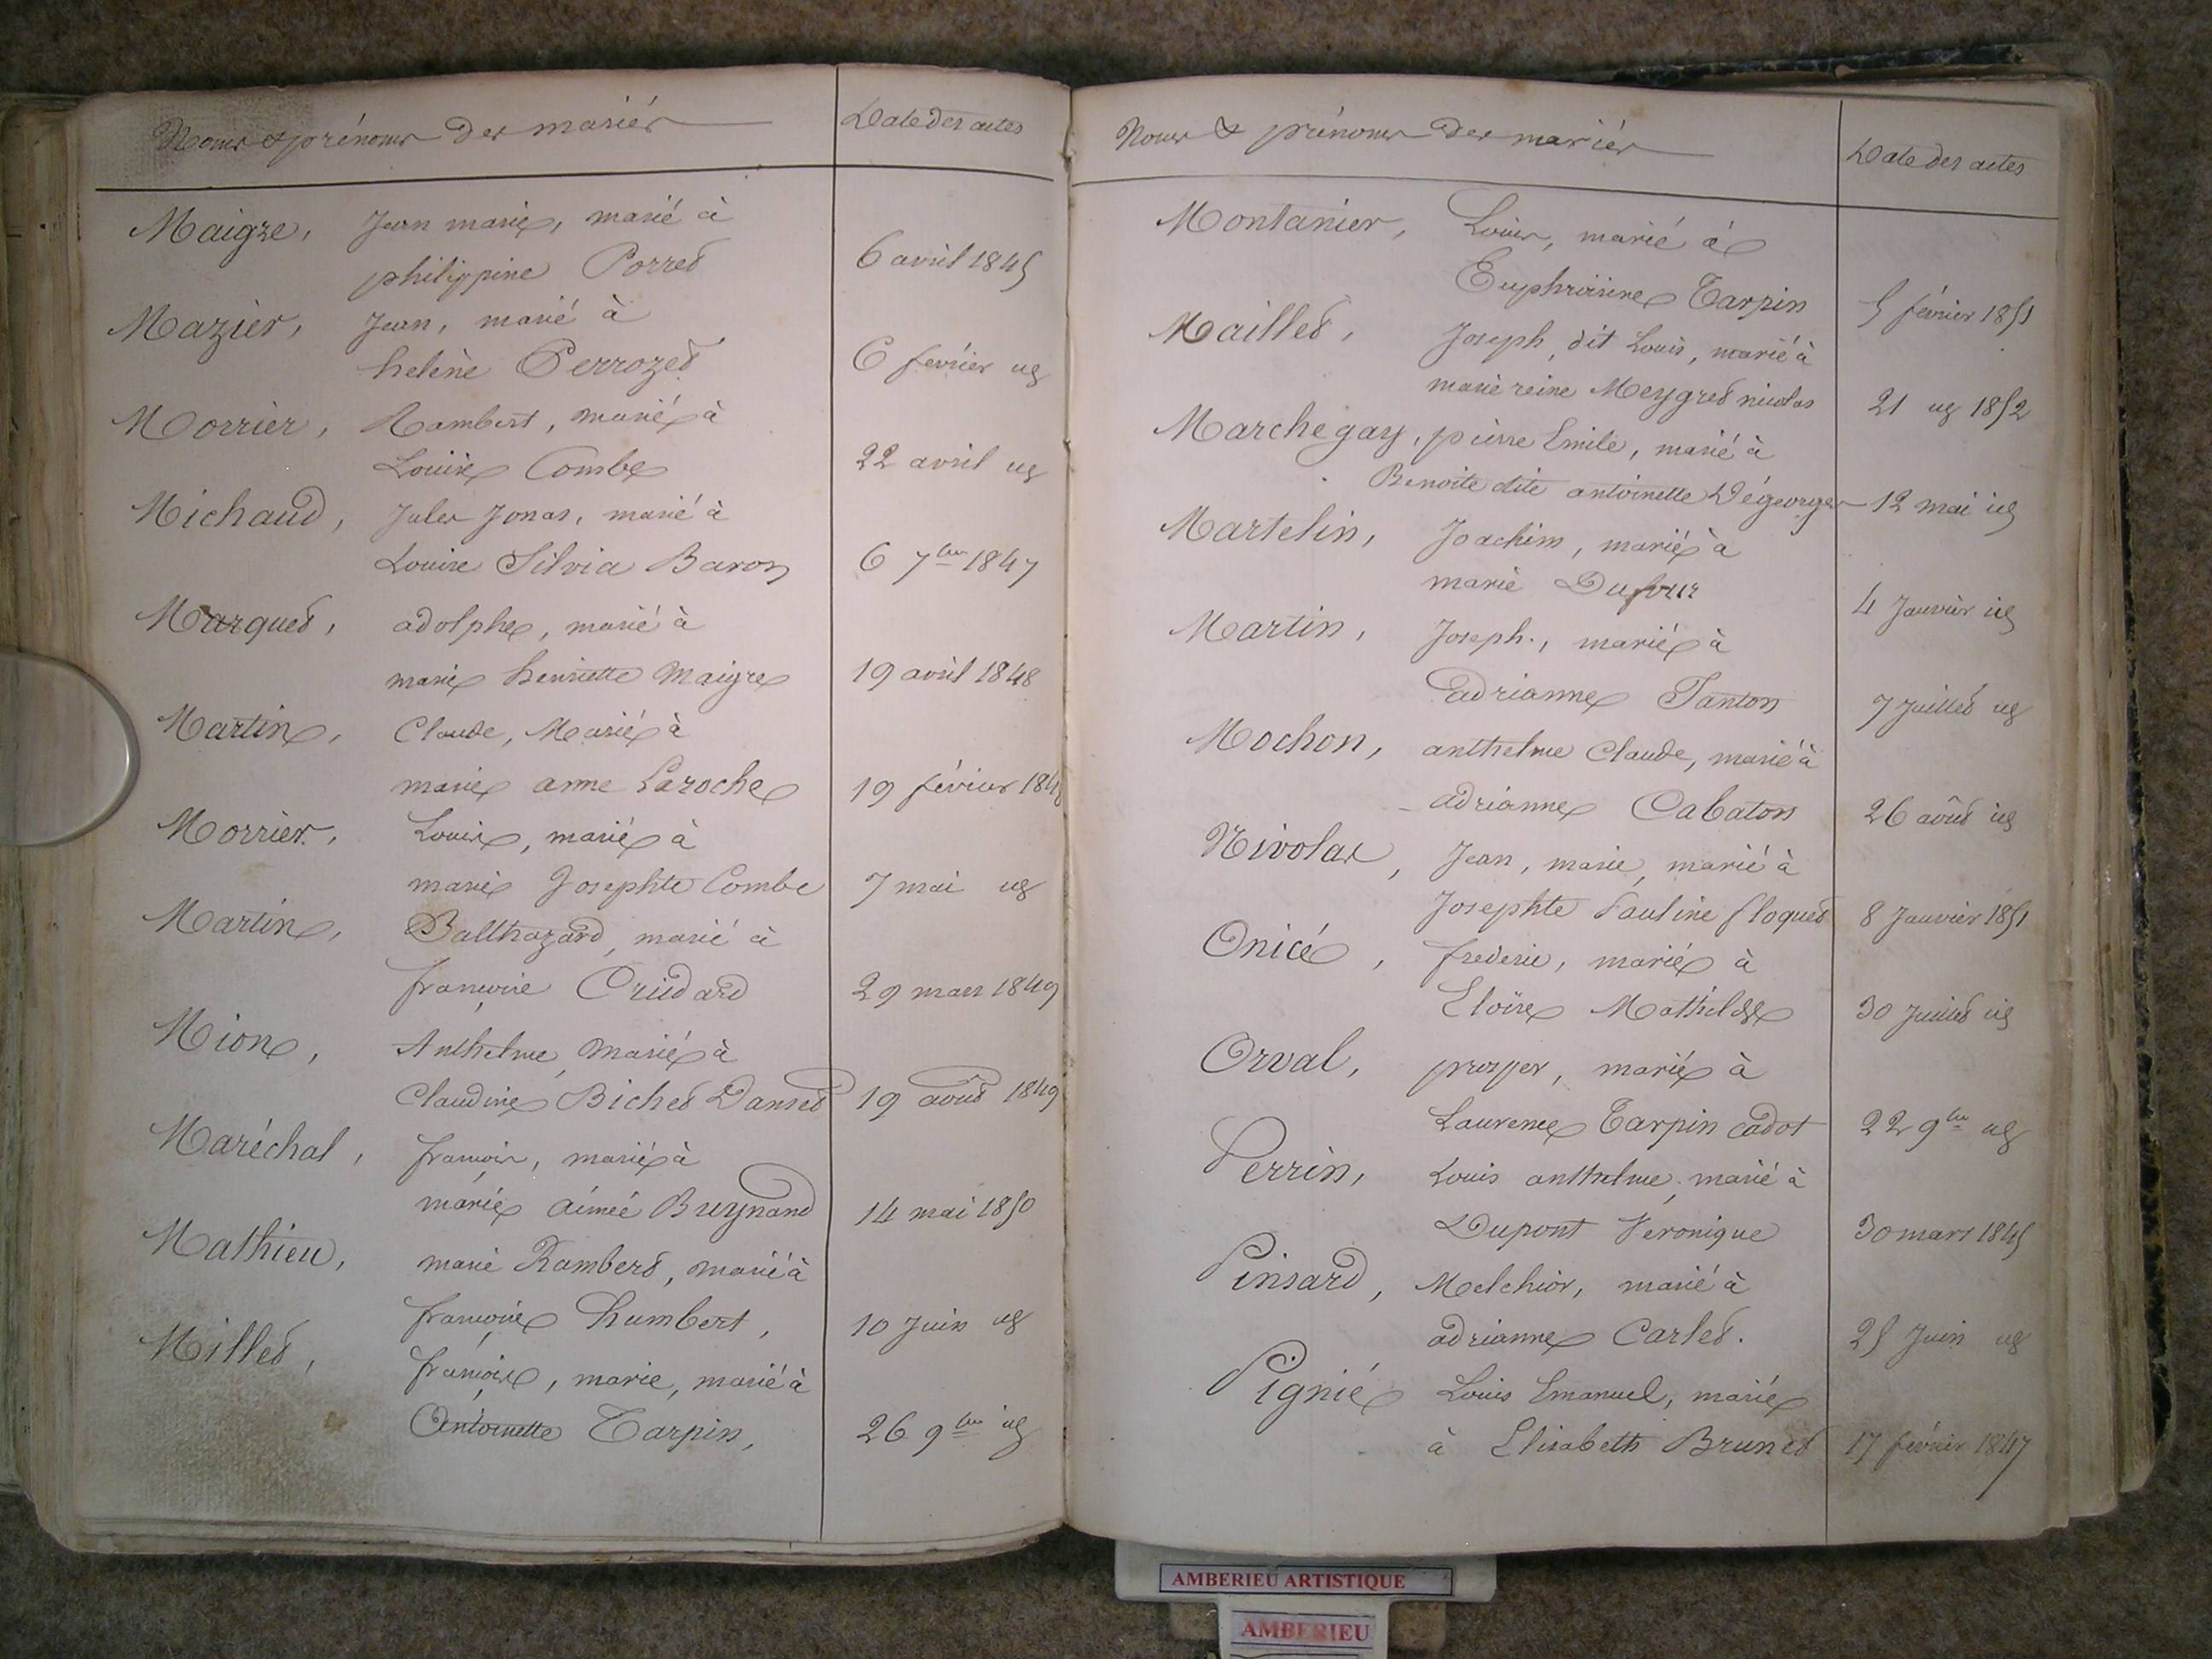 Noms & prénoms des mariés
Date des actes
Maigre, Jean marie, marié à
philippine Porret 6 avril 1845
Mazier, Jean, marié à
helène Perrozet 6 fevrier
Morrier, Rambert, marié à
Louise Combe 22 avril
Michaud, Jules Jonas, marié à
Louise Silvia Baron 6 7bre 1847
Marquet, adolphe, marié à
marie henriette Maigre 19 avril 1848
Martin, Claude, Marié à
marie anne Laroche 19 février 1848
Morrier, Louis, marié à
marie Josephte Combe 7 mai
Martin, Balthazard, marié à
françoise Crudard 29 mars 1849
Mion, Anthelme, Marié à
Claudine Bichet Danset 19 août 1849
Maréchal, françois, marié à
marie aimée Buynand 14 mai 1850
Mathieu, marie Rambert, marié à
françoise humbert, 10 Juin
Millet, françois, marie, marié à
Antoinette Tarpin, 26 9bre
Noms & prénoms des mariés
Date des actes
Montanier, Louis, marié à
Euphrosine Tarpin 5 février 1851
Maillet, Joseph, dit Louis, marié à
marie reine Meygret nicolas 21 1852
Marchegay, pierre Emile, marié à
Benoite dite antoinette Dégeorges 12 mai
Martelin, Joachim, marié à
marie Dufour 4 Janvier
Martin, Joseph, marié à
adrianne Tanton 7 Juillet
Mochon, anthelme Claude, marié à
adrianne Cabaton 26 août
Nivolas, Jean, marie, marié à
Josephte Pauline floquet 8 Janvier 1851
Onicé, frederic, marié à
Eloïse Mathilde 30 Juillet
Orval, prosper, marié à
Laurence Tarpin cadot 22 9bre
Perrin, Louis anthelme, marié à
Dupont Veronique 30 mars 1845
Pinsard, Melchior, marié à
adrianne Carlet. 25 Juin
Pignié Louis Emanuel, marié
à Elisabeth Brunet 17 février 1847
AMBERIEU ARTISTIQUE
AMBERIEU